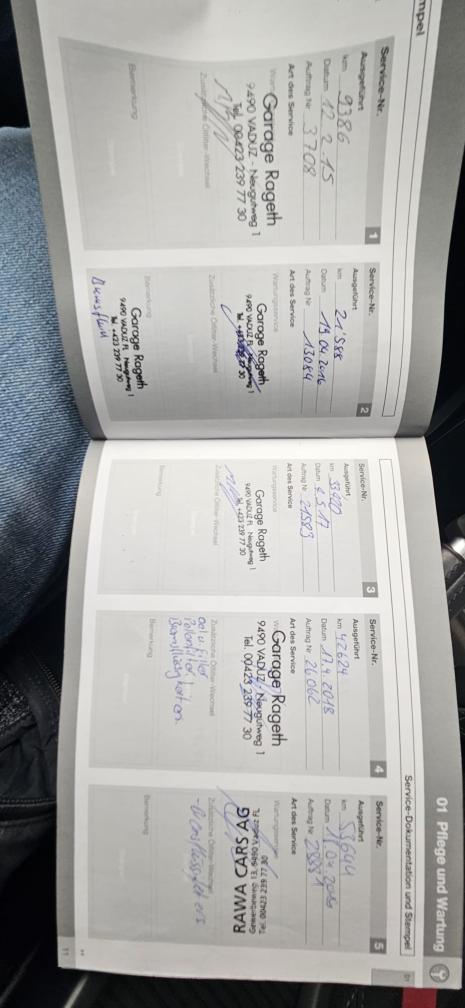 mpel
Service-Nr. 1
Ausgeführt
km 9386
Datum 12.2.15
Auftrag Nr. 3708
Art des Service
Garage Rageth
9490 VADUZ - Neugutweg 1
Tel. 00423 239 77 30
Zusätzliche Ölfilter-Wechsel
Bemerkung
Service-Nr. 2
Ausgeführt
km 21'588
Datum 19.04.2016
Auftrag Nr. 13084
Art des Service
Wartungsservice
Garage Rageth
9490 VADUZ FL Neugutweg 1
Tel. +423 239 77 30
Zusätzliche Ölfilter-Wechsel
Bemerkung
Garage Rageth
9490 VADUZ FL Neugutweg 1
Tel. +423 239 77 30
01 Pflege und Wartung
Service-Dokumentation und Stempel
01
Service-Nr. 3
Ausgeführt
km
Datum 2.5.17
Auftrag Nr. 21583
Art des Service
Wartungsservice
Garage Rageth
9490 VADUZ FL Neugutweg 1
Tel. +423 239 77 30
Zusätzliche Ölfilter-Wechsel
Bemerkung
Service-Nr. 4
Ausgeführt
km 42624
Datum 17.4.2018
Auftrag Nr. 26062
Art des Service
Garage Rageth
9490 VADUZ - Neugutweg 1
Tel. 00423 239 77 30
Zusätzliche Ölfilter-Wechsel
Oel u. Filter
Pollenfilter
Bemerkung
Service-Nr. 5
Ausgeführt
km 53644
Datum
Auftrag Nr.
Art des Service
Wartungsservice
RAWA CARS AG
Tel. 00423 239 77 30
Zusätzliche Ölfilter-Wechsel
Bemerkung
11